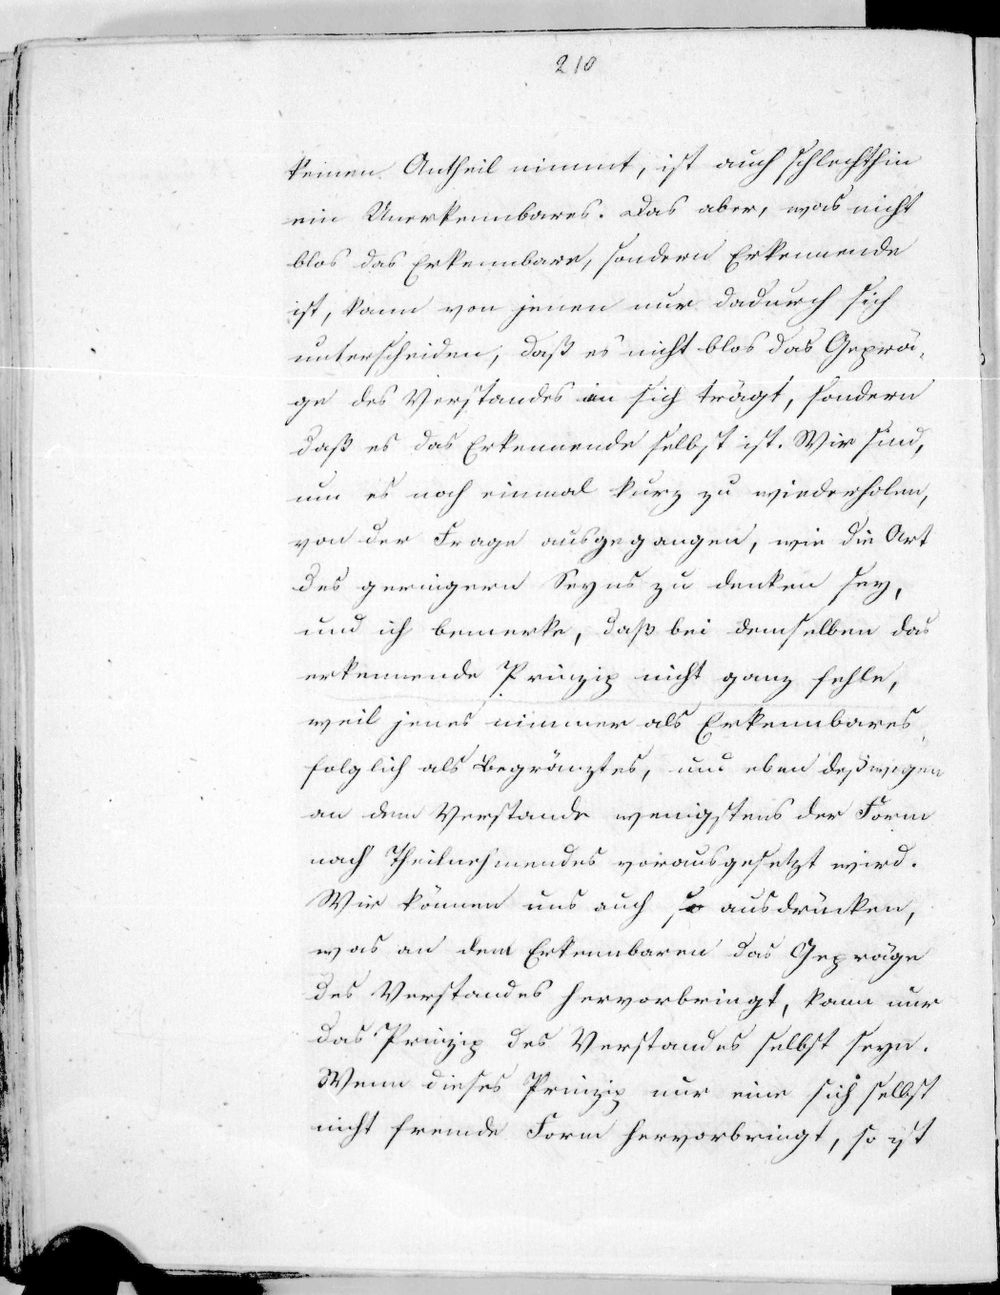 210
keinen Antheil nimmt, ist auch schlechthin
ein Unerkennbares. Das aber, was nicht
blos das Erkennbare, sondern Erkennende
ist, kann von jenem nur dadurch sich
unterscheiden, daß es nicht blos das Geprä-
ge des Verstandes an sich trägt, sondern
daß es das Erkennende selbst ist. Wir sind,
um es noch einmal kurz zu wiederholen,
von der Frage ausgegangen, wie die Art
des geringern Seyns zu denken sey,
und ich bemerke, daß bei demselben das
erkennende Prinzip nicht ganz fehle,
weil jenes nimmer als Erkennbares,
folglich als Begränztes, und eben deßwegen
an dem Verstande wenigstens der Form
nach Theilnehmendes vorausgesetzt wird.
Wir können uns auch so ausdrücken,
was an dem Erkennbaren das Gepräge
des Verstandes hervorbringt, kann nur
das Prinzip des Verstandes selbst seyn.
Wenn dieses Prinzip nur eine sich selbst
nicht fremde Form hervorbringt, so ist